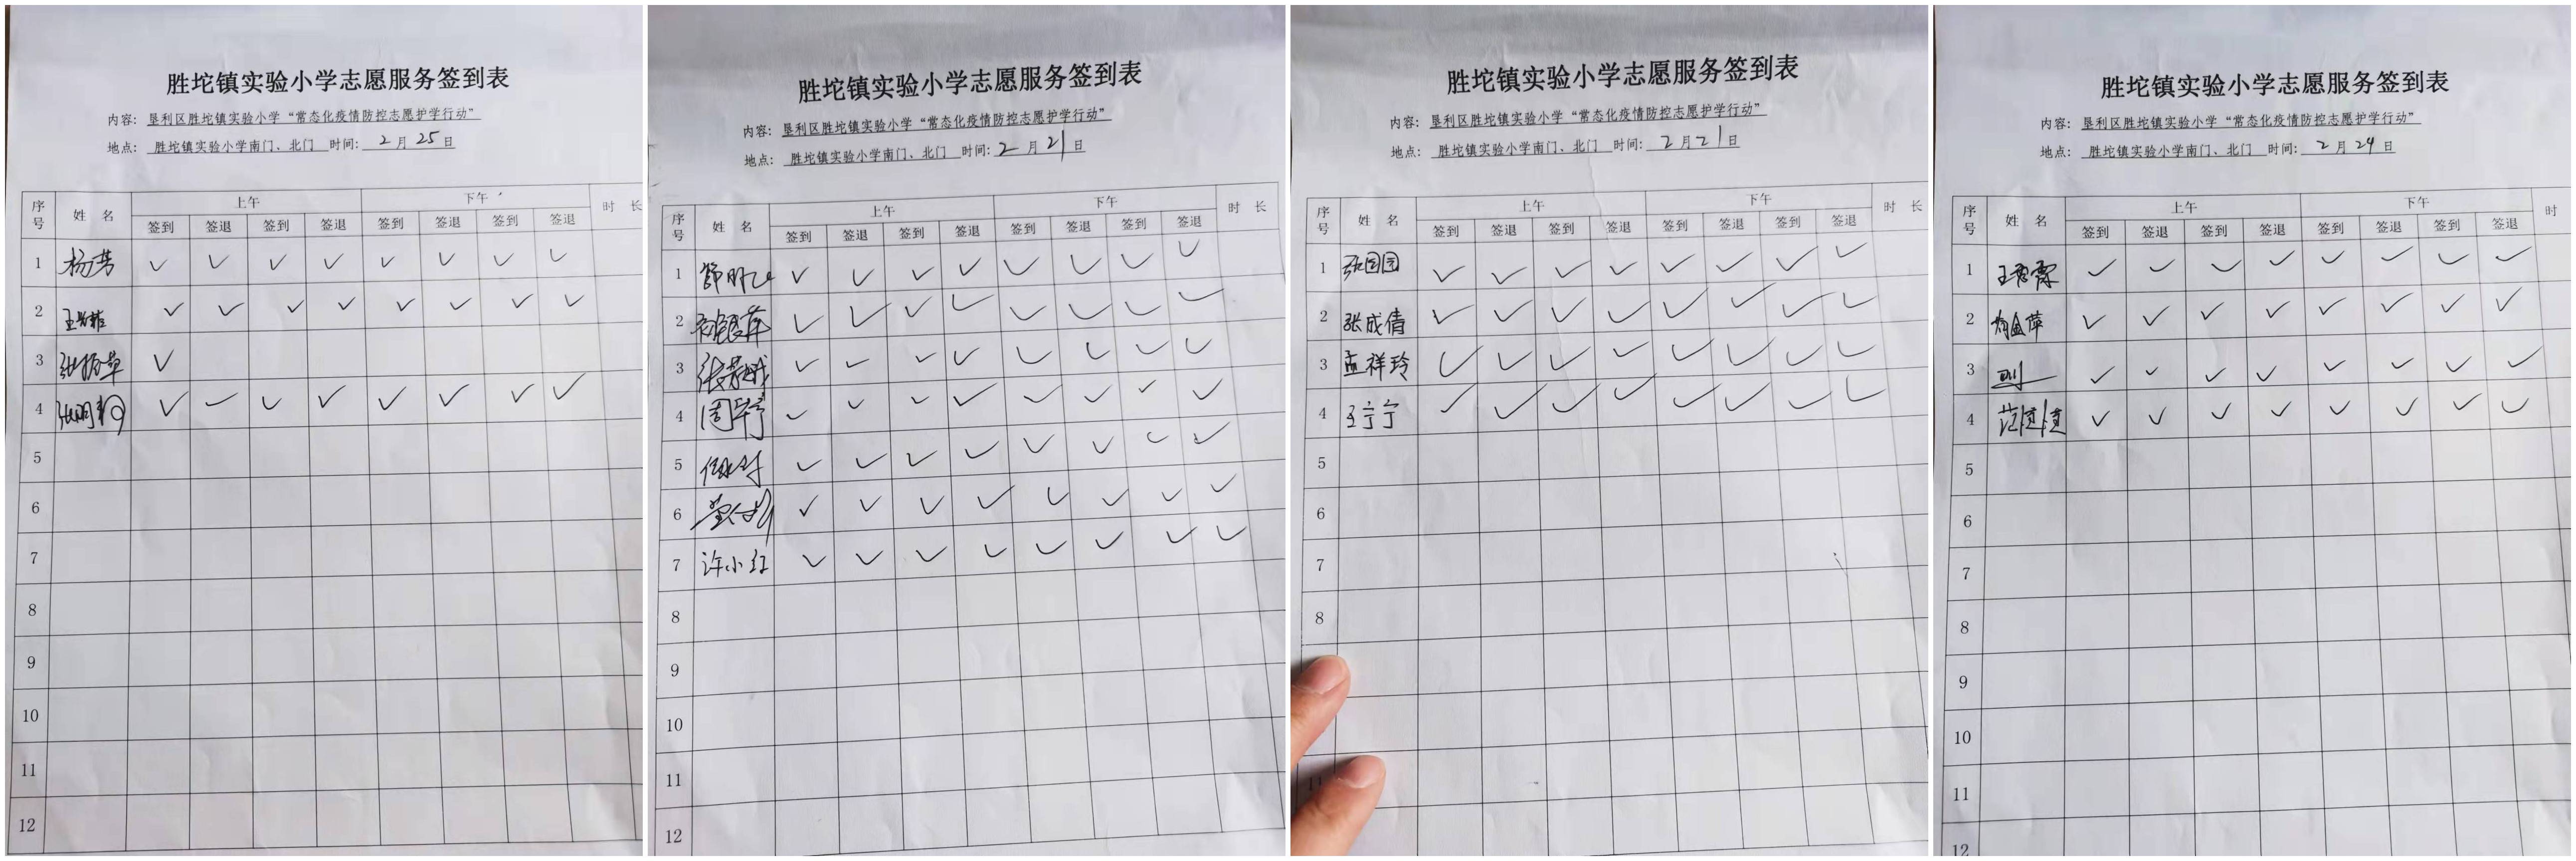 胜坨镇实验小学志愿服务签到表
内容：垦利区胜坨镇实验小学“常态化疫情防控志愿护学行动”
地点：胜坨镇实验小学南门、北门 时间：2月25日
序号 姓名 上午 下午 时长
签到 签退 签到 签退 签到 签退 签到 签退
1 杨芳 ✓ ✓ ✓ ✓ ✓ ✓ ✓ ✓
2 ✓ ✓ ✓ ✓ ✓ ✓ ✓ ✓
3 ✓
4 ✓ ✓ ✓ ✓ ✓ ✓ ✓ ✓
5
6
7
8
9
10
11
12
胜坨镇实验小学志愿服务签到表
内容：垦利区胜坨镇实验小学“常态化疫情防控志愿护学行动”
地点：胜坨镇实验小学南门、北门 时间：2月21日
序号 姓名 上午 下午 时长
签到 签退 签到 签退 签到 签退 签到 签退
1 ✓ ✓ ✓ ✓ ✓ ✓ ✓ ✓
2 ✓ ✓ ✓ ✓ ✓ ✓ ✓ ✓
3 ✓ ✓ ✓ ✓ ✓ ✓ ✓ ✓
4 ✓ ✓ ✓ ✓ ✓ ✓ ✓ ✓
5 ✓ ✓ ✓ ✓ ✓ ✓ ✓ ✓
6 ✓ ✓ ✓ ✓ ✓ ✓ ✓ ✓
7 许小红 ✓ ✓ ✓ ✓ ✓ ✓ ✓ ✓
8
9
10
11
12
胜坨镇实验小学志愿服务签到表
内容：垦利区胜坨镇实验小学“常态化疫情防控志愿护学行动”
地点：胜坨镇实验小学南门、北门 时间：2月21日
序号 姓名 上午 下午 时长
签到 签退 签到 签退 签到 签退 签到 签退
1 张园园 ✓ ✓ ✓ ✓ ✓ ✓ ✓ ✓
2 张成倩 ✓ ✓ ✓ ✓ ✓ ✓ ✓ ✓
3 孟祥玲 ✓ ✓ ✓ ✓ ✓ ✓ ✓ ✓
4 王宁宁 ✓ ✓ ✓ ✓ ✓ ✓ ✓ ✓
5
6
7
8
11
胜坨镇实验小学志愿服务签到表
内容：垦利区胜坨镇实验小学“常态化疫情防控志愿护学行动”
地点：胜坨镇实验小学南门、北门 时间：2月24日
序号 姓名 上午 下午 时
签到 签退 签到 签退 签到 签退 签到 签退
1 ✓ ✓ ✓ ✓ ✓ ✓ ✓ ✓
2 ✓ ✓ ✓ ✓ ✓ ✓ ✓ ✓
3 ✓ ✓ ✓ ✓ ✓ ✓ ✓ ✓
4 ✓ ✓ ✓ ✓ ✓ ✓ ✓ ✓
5
6
7
8
9
10
11
12